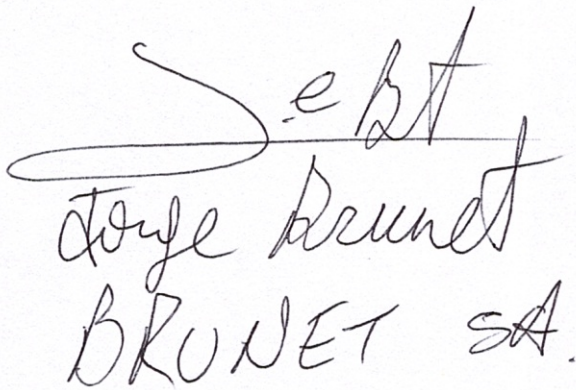 J.e Bt
Jorge Brunet
BRUNET SA.